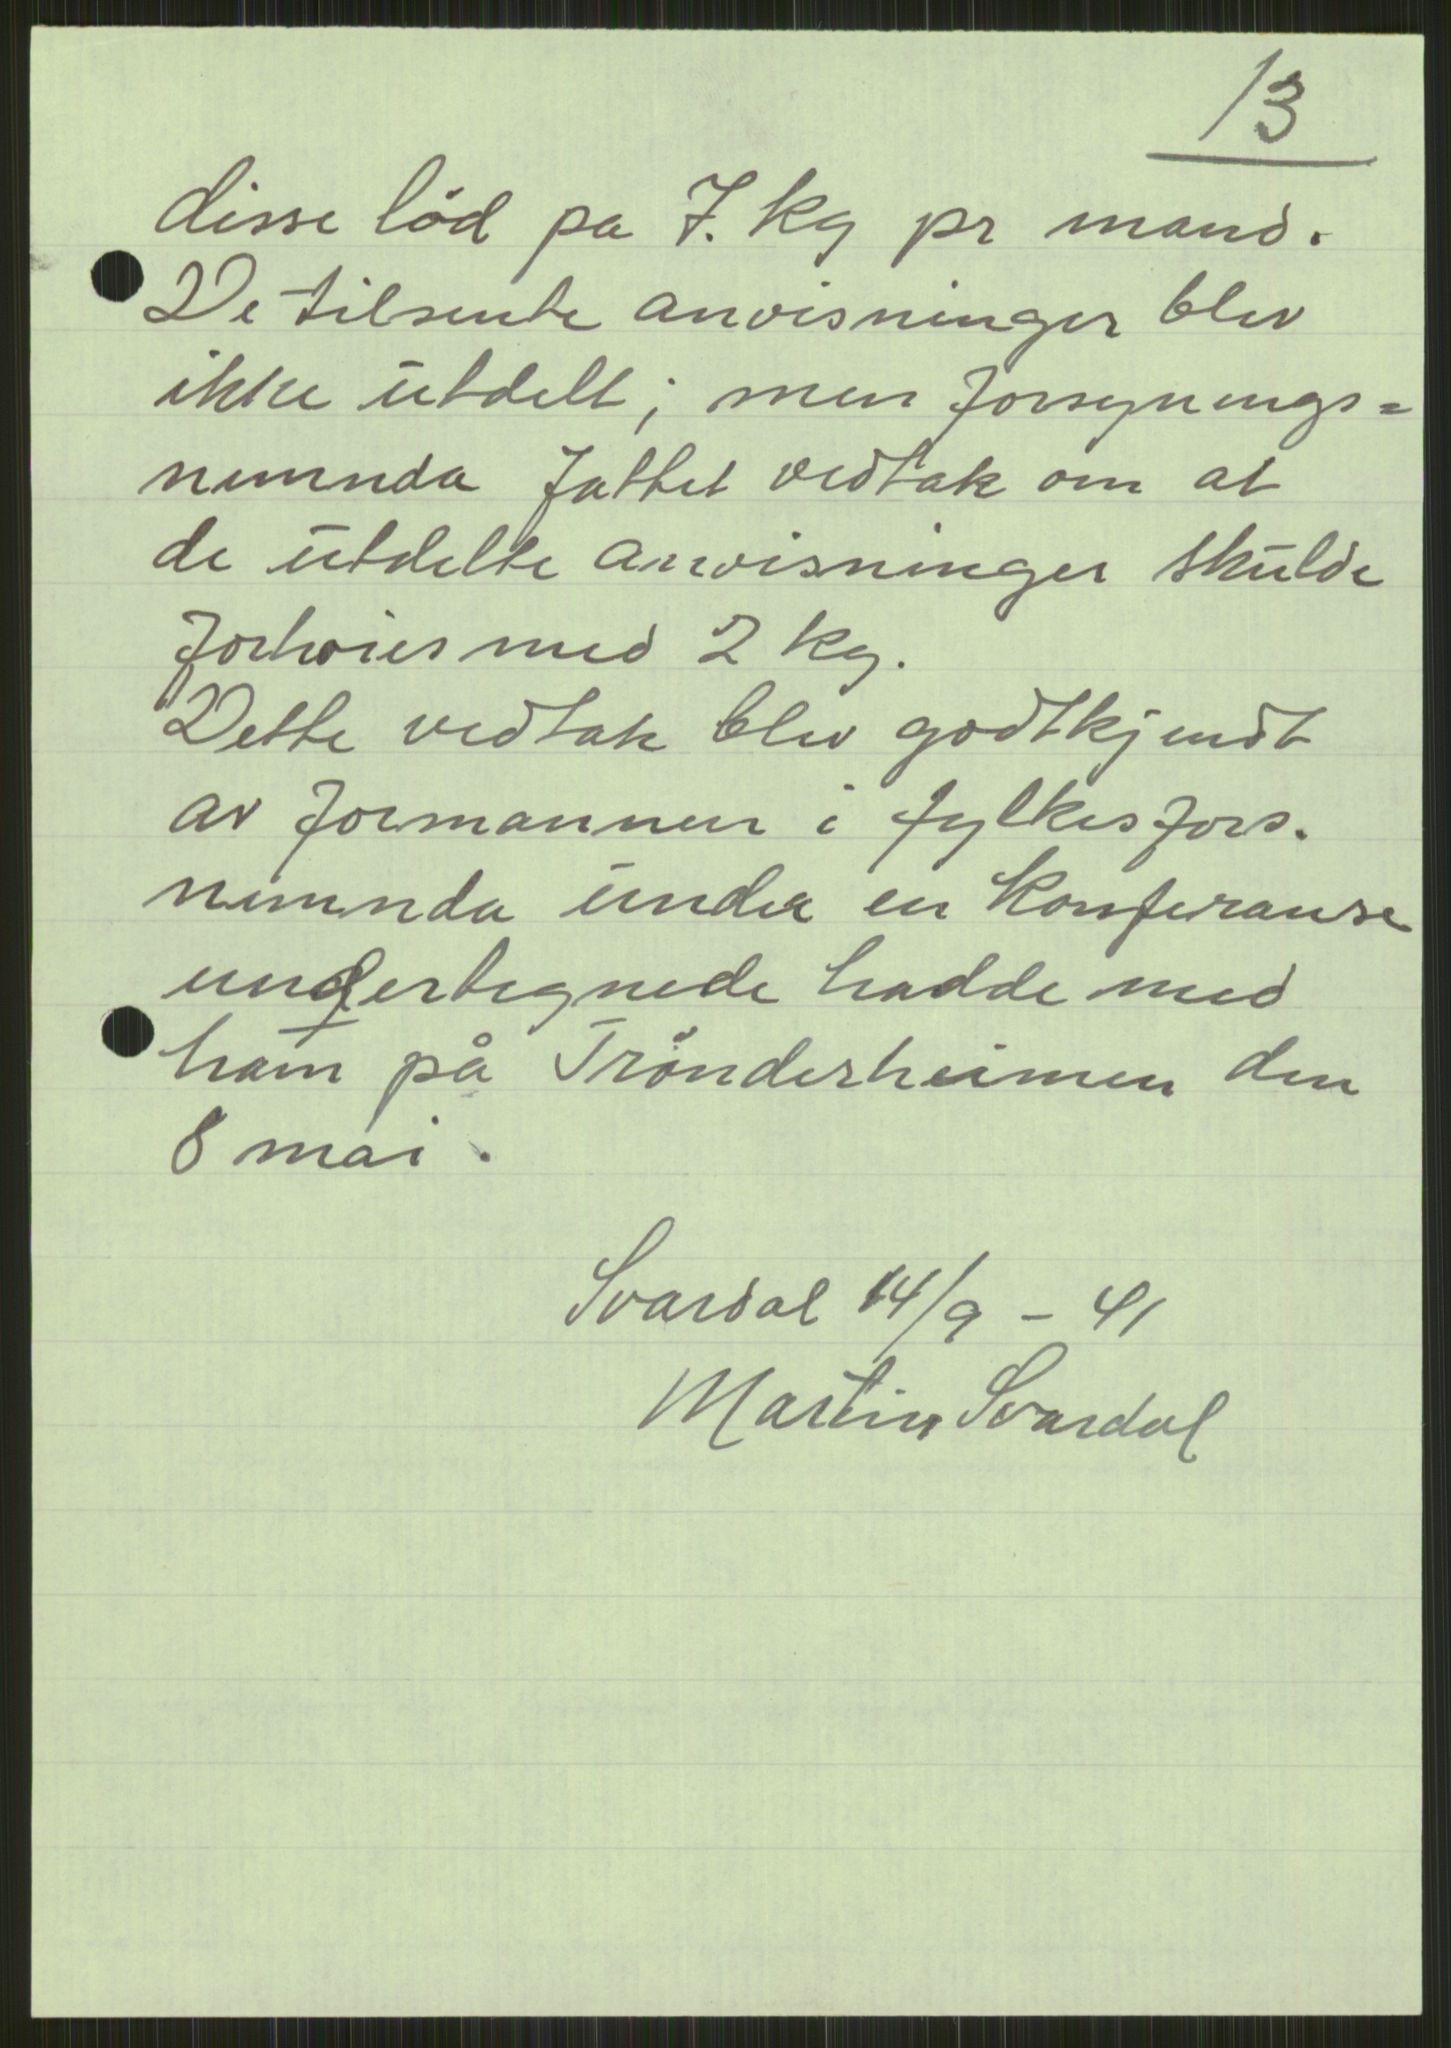 13
disse lød pa 7. kg pr mand.
De tilsente anvisninger blev
ikke utdelt; men forsynings=
nemnda fattet vedtak om at
de utdelte anvisninger skulde
forhøies med 2 kg.
Dette vedtak blev godtkjendt
av formannen i fylkesfors.
nemnda under en konferanse
undertegnede hadde med
ham på Trønderheimen den
8 mai.
Svardal 14/9 - 41
Martin Svardal